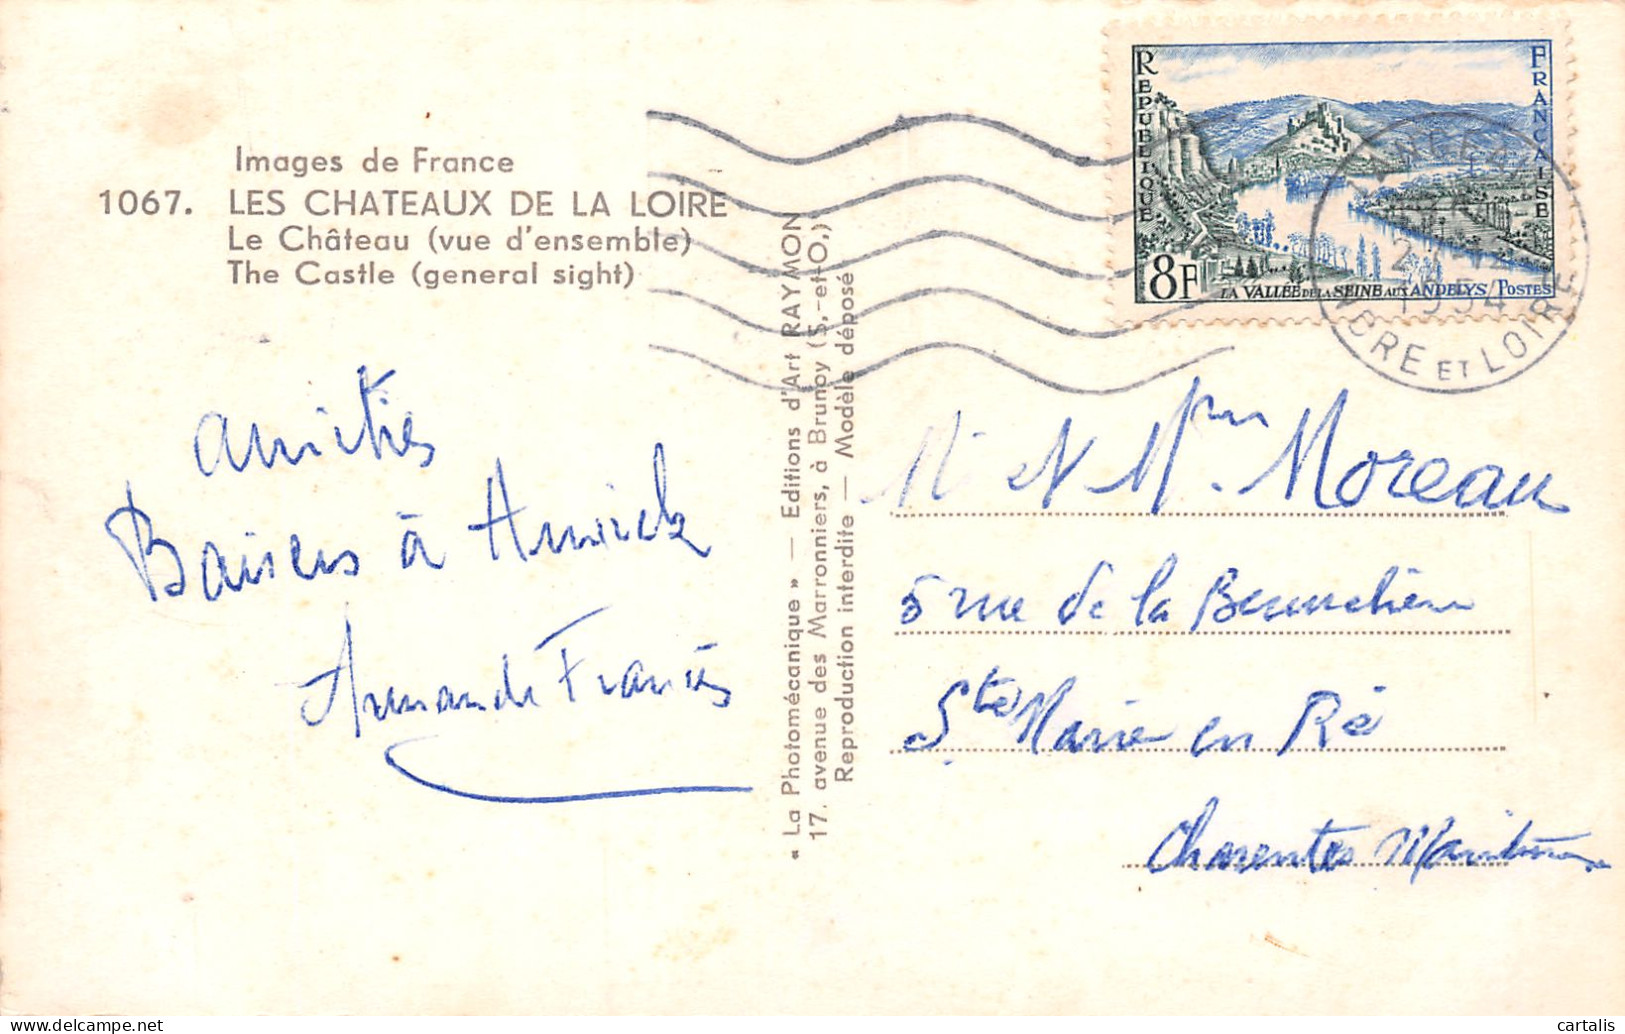 Images de France
1067. LES CHATEAUX DE LA LOIRE
Le Château (vue d'ensemble)
The Castle (general sight)
REPUBLIQUE FRANCAISE
8F
LA VALLÉE DE LA SEINE AUX ANDELYS POSTES
1954
INDRE ET LOIRE
« La Photomécanique » — Editions d'Art RAYMON
17. avenue des Marronniers, à Brunoy (S.-et-O.)
Reproduction interdite — Modèle déposé
Amitiés
Baisers à Annick
Armande Francis
M. et Mme Moreau
5 rue de la
Ste Marie en Ré
Charentes Maritime
cartalis
www.delcampe.net